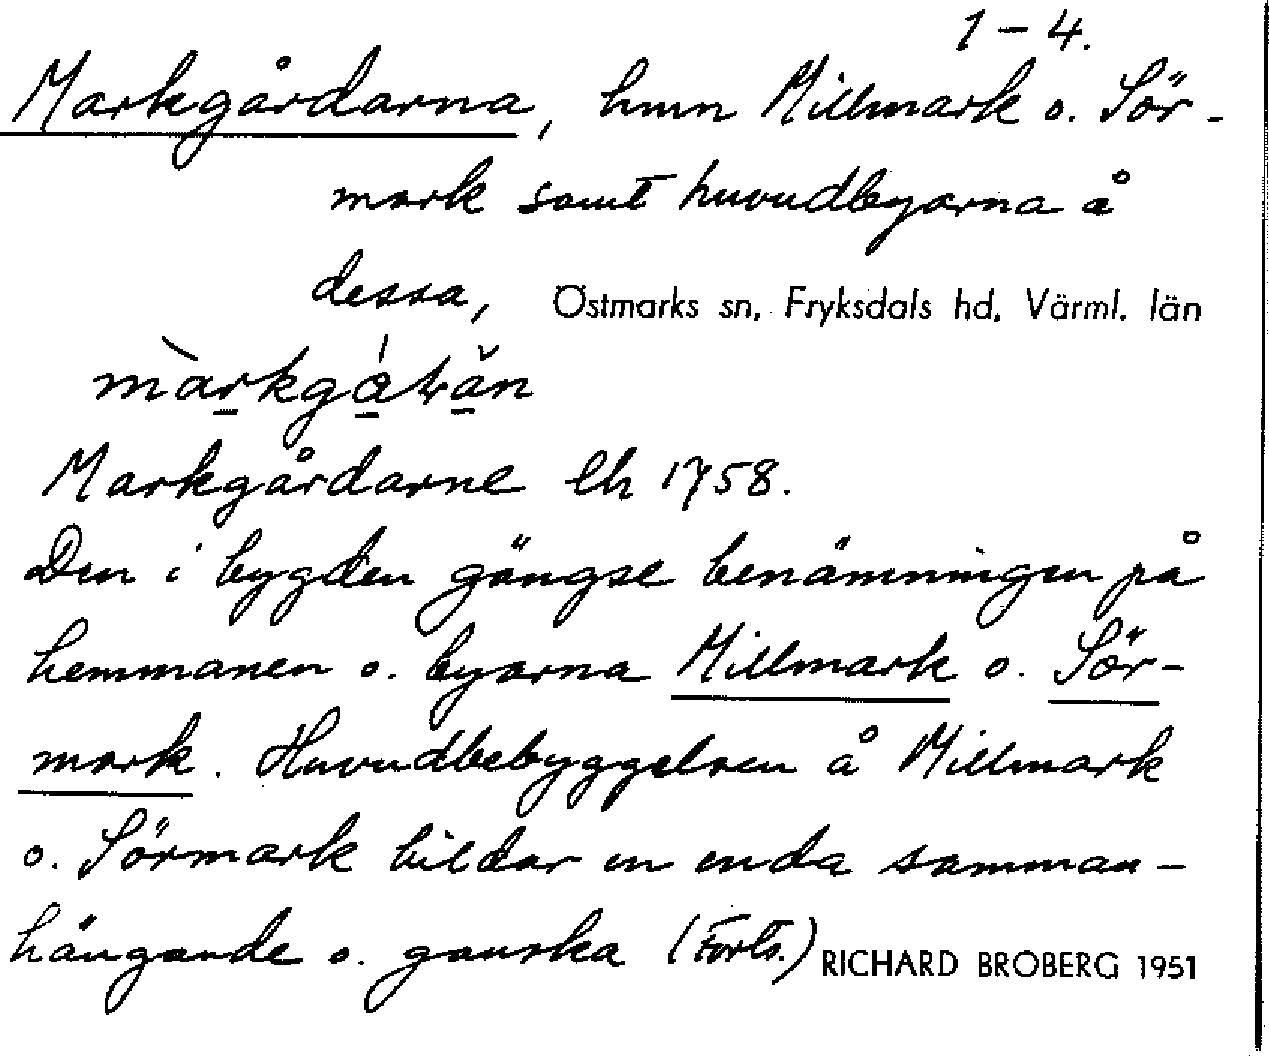 1-4.
Markgårdarna, hmn Millmark o. Sör-
mark samt huvudbyarna å
dessa, Östmarks sn, Fryksdals hd, Värml. län
Markgårdarne lh 1758.
Den i bygden gängse benämningen på
hemmanen o. byarna Millmark o. Sör-
mark. Huvudbebyggelsen å Millmark
o. Sörmark bildar en enda samman-
hängande o. ganska (Forts.) RICHARD BROBERG 1951